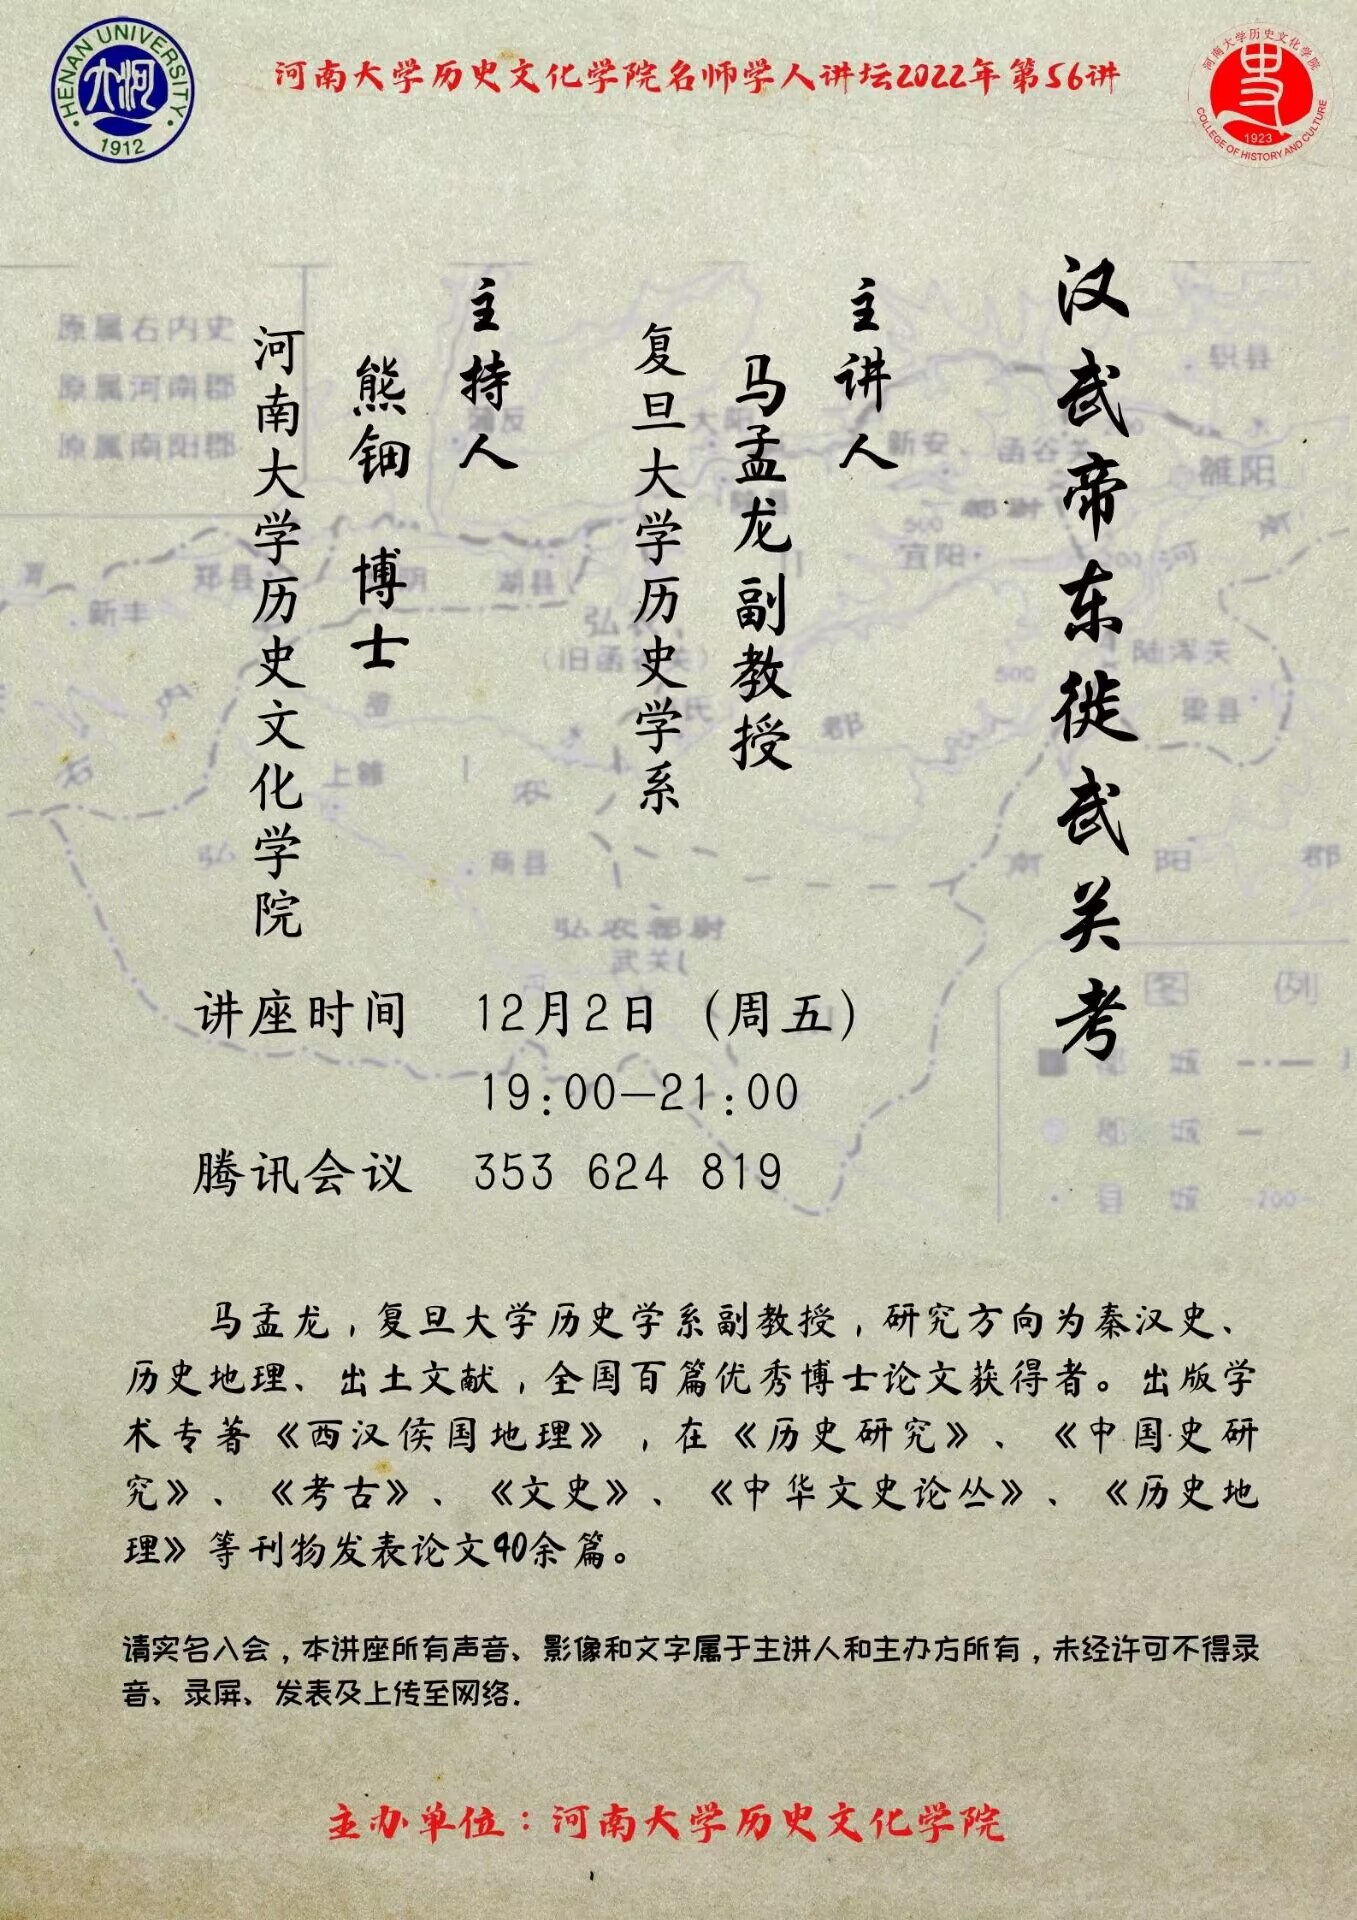 河南大学历史文化学院名师学人讲坛2022年第56讲
HENAN UNIVERSITY
1912
河南大学历史文化学院
1923
COLLEGE OF HISTORY AND CULTURE
汉武帝东徙武关考
主讲人
马孟龙副教授
复旦大学历史学系
主持人
熊钿 博士
河南大学历史文化学院
原属右内史
原属河南郡
原属南阳郡
轵县
雒阳
新安
函谷关
宜阳
大阳
湖县
郑县
新丰
陆浑关
梁县
上雒
商县
弘农都尉
武关
南阳郡
图例
县城
讲座时间 12月2日（周五）
19:00—21:00
腾讯会议 353 624 819
马孟龙，复旦大学历史学系副教授，研究方向为秦汉史、
历史地理、出土文献，全国百篇优秀博士论文获得者。出版学
术专著《西汉侯国地理》，在《历史研究》、《中国史研
究》、《考古》、《文史》、《中华文史论丛》、《历史地
理》等刊物发表论文40余篇。
请实名入会，本讲座所有声音、影像和文字属于主讲人和主办方所有，未经许可不得录
音、录屏、发表及上传至网络.
主办单位：河南大学历史文化学院